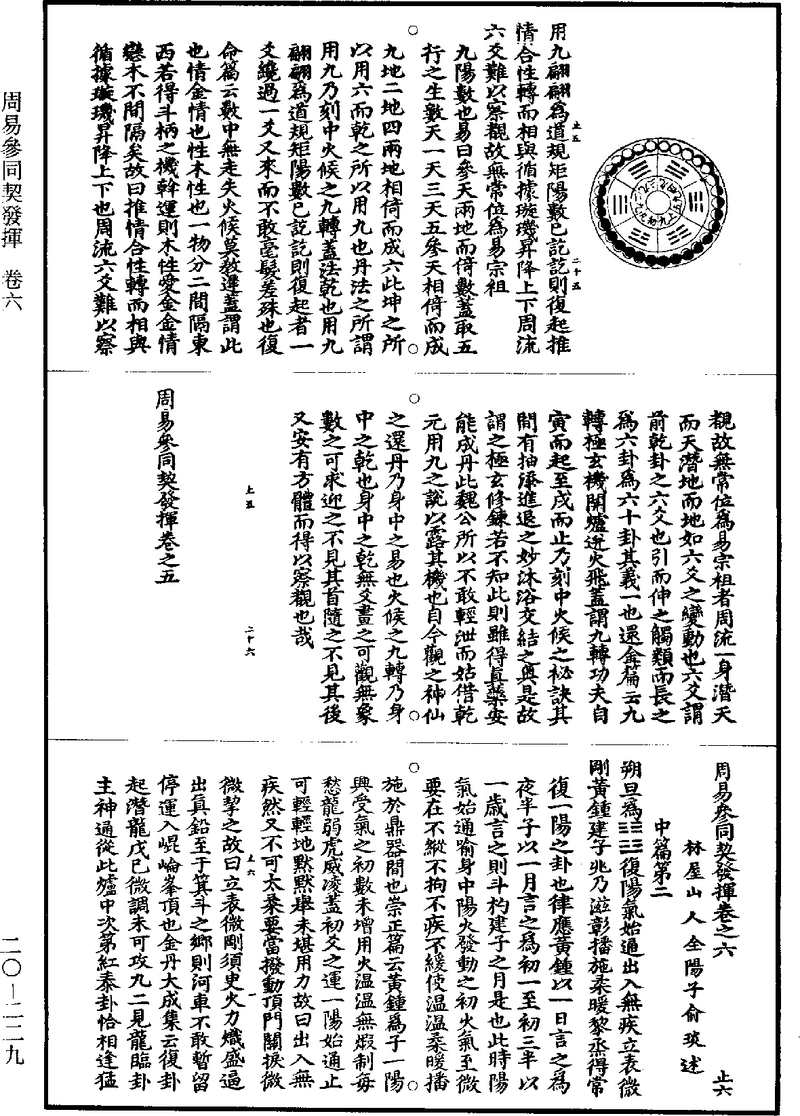 周易參同契發揮 卷六
二〇—二二九
用九翩翩爲道規矩陽數已訖訖則復起推
情合性轉而相與循據璇璣昇降上下周流
六爻難以察觀故無常位爲易宗祖
九陽數也易曰參天兩地而倚數蓋取五
行之生數天一天三天五參天相倚而成
九地二地四兩地相倚而成六此坤之所
以用六而乾之所以用九也丹法之所謂
用九乃刻中火候之九轉蓋法乾也用九
翩翩爲道規矩陽數已訖訖則復起者一
爻纔過一爻又來而不敢毫髮差殊也復
命篇云數中無走失火候莫教遲蓋謂此
也情金情也性木性也一物分二間隔東
西若得斗柄之機斡運則木性愛金金情
戀木不間隔矣故曰推情合性轉而相與
循據璇璣昇降上下也周流六爻難以察
上五
二十五
觀故無常位爲易宗祖者周流一身潛天
而天潛地而地如六爻之變動也六爻謂
前乾卦之六爻也引而伸之觸類而長之
爲六卦爲六十卦其義一也還金篇云九
轉極玄機開爐迸火飛蓋謂九轉功夫自
寅而起至戌而止乃刻中火候之秘訣其
間有抽添進退之妙沐浴交結之奧是故
謂之極玄修鍊若不知此則雖得真藥安
能成丹此魏公所以不敢輕泄而姑借乾
元用九之說以露其機也自今觀之神仙
之還丹乃身中之易也火候之九轉乃身
中之乾也身中之乾無爻畫之可觀無象
數之可求迎之不見其首隨之不見其後
又安有方體而得以察觀也哉
上五
二十六
周易參同契發揮卷之五
周易參同契發揮卷之六
上六
林屋山人全陽子俞琰述
中篇第二
朔旦爲䷗復陽氣始通出入無疾立表微
剛黃鍾建子兆乃滋彰播施柔暖黎烝得常
復一陽之卦也律應黃鍾以一日言之爲
夜半子以一月言之爲初一至初三半以
一歲言之則斗杓建子之月是也此時陽
氣始通喻身中陽火發動之初火氣至微
要在不縱不拘不疾不緩使溫溫柔暖播
施於鼎器間也崇正篇云黃鍾爲子一陽
興受氣之初數未增用火溫溫無煆制毋
愁龍弱虎威凌蓋初爻之運一陽始通止
可輕輕地默默舉未堪用力故曰出入無
疾然又不可太柔要當撥動頂門關捩微
微挈之故曰立表微剛須臾火力熾盛逼
上六
出真鉛至于箕斗之鄉則河車不敢暫留
停運入崐崘峯頂也金丹大成集云復卦
起潛龍戊己微調未可攻九二見龍臨卦
主神通從此爐中次第紅泰卦恰相逢猛